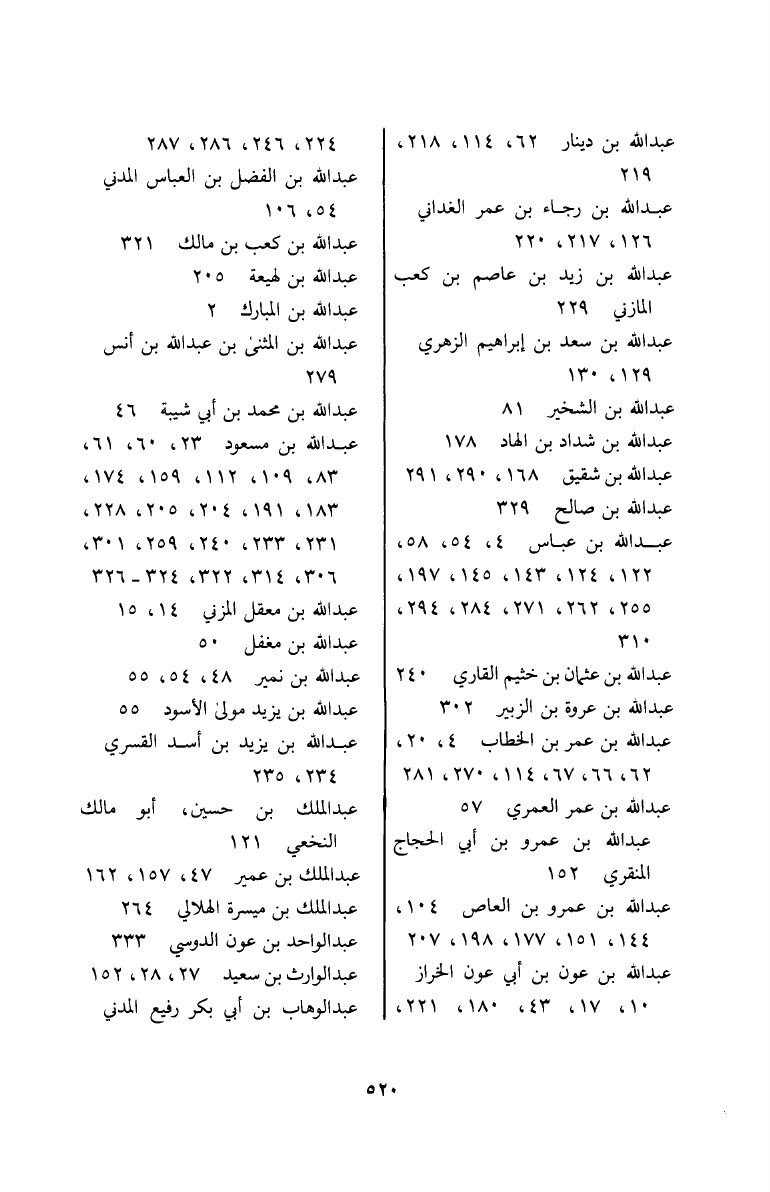 عبدالله بن دينار ٦٢، ١١٤، ٢١٨،
٢١٩
عبدالله بن رجاء بن عمر الغداني
١٢٦، ٢١٧، ٢٢٠
عبدالله بن زيد بن عاصم بن كعب
المازني ٢٢٩
عبدالله بن سعد بن إبراهيم الزهري
١٢٩، ١٣٠
عبدالله بن الشخير ٨١
عبدالله بن شداد بن الهاد ١٧٨
عبدالله بن شقيق ١٦٨، ٢٩٠، ٢٩١
عبدالله بن صالح ٣٢٩
عبدالله بن عباس ٤، ٥٤، ٥٨،
١٢٢، ١٢٤، ١٤٣، ١٤٥، ١٩٧،
٢٥٥، ٢٦٢، ٢٧١، ٢٨٤، ٢٩٤،
٣١٠
عبدالله بن عثمان بن خثيم القاري ٢٤٠
عبدالله بن عروة بن الزبير ٣٠٢
عبدالله بن عمر بن الخطاب ٤، ٢٠،
٦٢، ٦٦، ٦٧، ١١٤، ٢٧٠، ٢٨١
عبدالله بن عمر العمري ٥٧
عبدالله بن عمرو بن أبي الحجاج
المنقري ١٥٢
عبدالله بن عمرو بن العاص ١٠٤،
١٤٤، ١٥١، ١٧٧، ١٩٨، ٢٠٧
عبدالله بن عون بن أبي عون الخراز
١٠، ١٧، ٤٣، ١٨٠، ٢٢١،
٢٢٤، ٢٤٦، ٢٨٦، ٢٨٧
عبدالله بن الفضل بن العباس المدني
٥٤، ١٠٦
عبدالله بن كعب بن مالك ٣٢١
عبدالله بن لهيعة ٢٠٥
عبدالله بن المبارك ٢
عبدالله بن المثنىٰ بن عبدالله بن أنس
٢٧٩
عبدالله بن محمد بن أبي شيبة ٤٦
عبدالله بن مسعود ٢٣، ٦٠، ٦١،
٨٣، ١٠٩، ١١٢، ١٥٩، ١٧٤،
١٨٣، ١٩١، ٢٠٤، ٢٠٥، ٢٢٨،
٢٣١، ٢٣٣، ٢٤٠، ٢٥٩، ٣٠١،
٣٠٦، ٣١٤، ٣٢٢، ٣٢٤ ـ ٣٢٦
عبدالله بن معقل المزني ١٤، ١٥
عبدالله بن مغفل ٥٠
عبدالله بن نمير ٤٨، ٥٤، ٥٥
عبدالله بن يزيد مولىٰ الأسود ٥٥
عبدالله بن يزيد بن أسد القسري
٢٣٤، ٢٣٥
عبدالملك بن حسين، أبو مالك
النخعي ١٢١
عبدالملك بن عمير ٤٧، ١٥٧، ١٦٢
عبدالملك بن ميسرة الهلالي ٢٦٤
عبدالواحد بن عون الدوسي ٣٣٣
عبدالوارث بن سعيد ٢٧، ٢٨، ١٥٢
عبدالوهاب بن أبي بكر رفيع المدني
٥٢٠